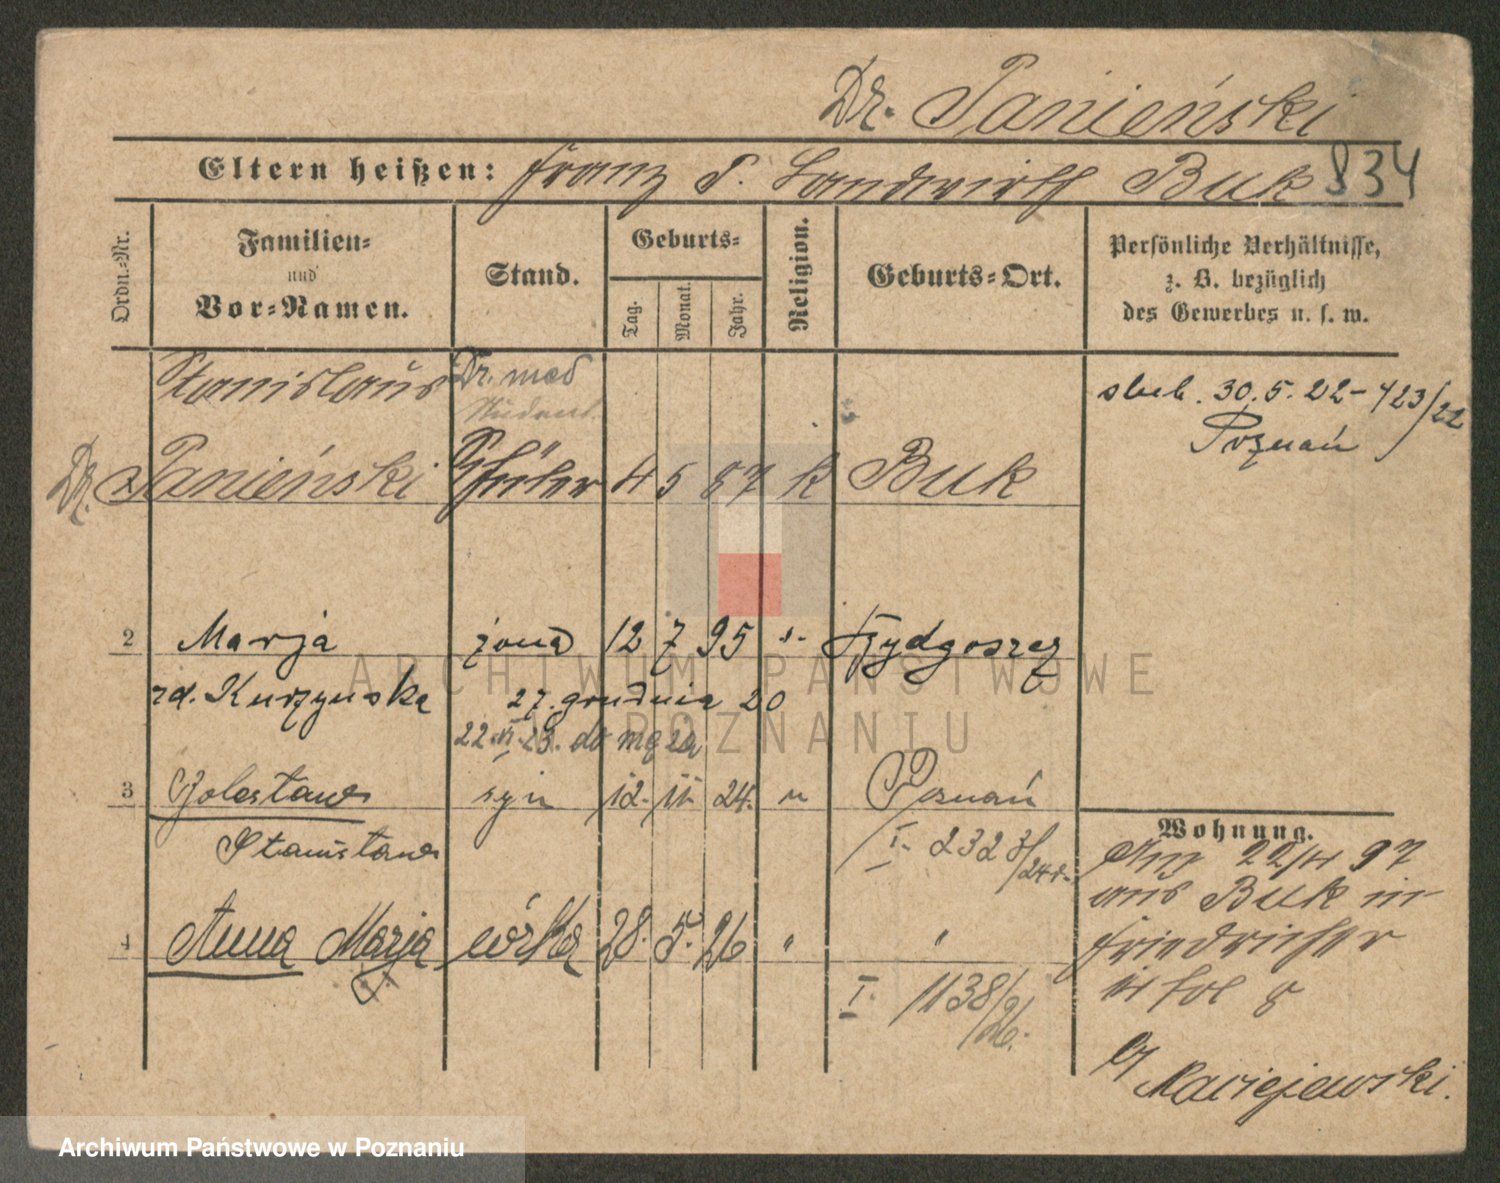 Dr. Panieński
Eltern heißen: Franz P. Landwirth Buk 834
Ordn.-Nr.
Familien-
und
Vor-Namen.
Stand.
Geburts-
Tag.
Monat.
Jahr.
Religion.
Geburts-Ort.
Persönliche Verhältnisse,
z. B. bezüglich
des Gewerbes u. s. w.
Stanislaus Dr. med
Student
Dr. Panieński Schüler 4 5 87 k Buk
slub. 30.5.22 - 423/22
Poznań
2 Marja żona 12 7 95 Bydgoszcz
zd. Kurzyńska 27. grudnia 20
22. VI 23. do męża
3 Bolesław syn 12. 11. 24. " Poznań
Stanisław I. 2323/24r.
4 Anna Marja córka 28. 5. 26 " "
I. 1138/26.
Wohnung.
Anz 22/4 97
aus Buk in
Friedrichstr
14 fol 8
b/ Maciejewski.
ARCHIWUM PAŃSTWOWE
W POZNANIU
Archiwum Państwowe w Poznaniu